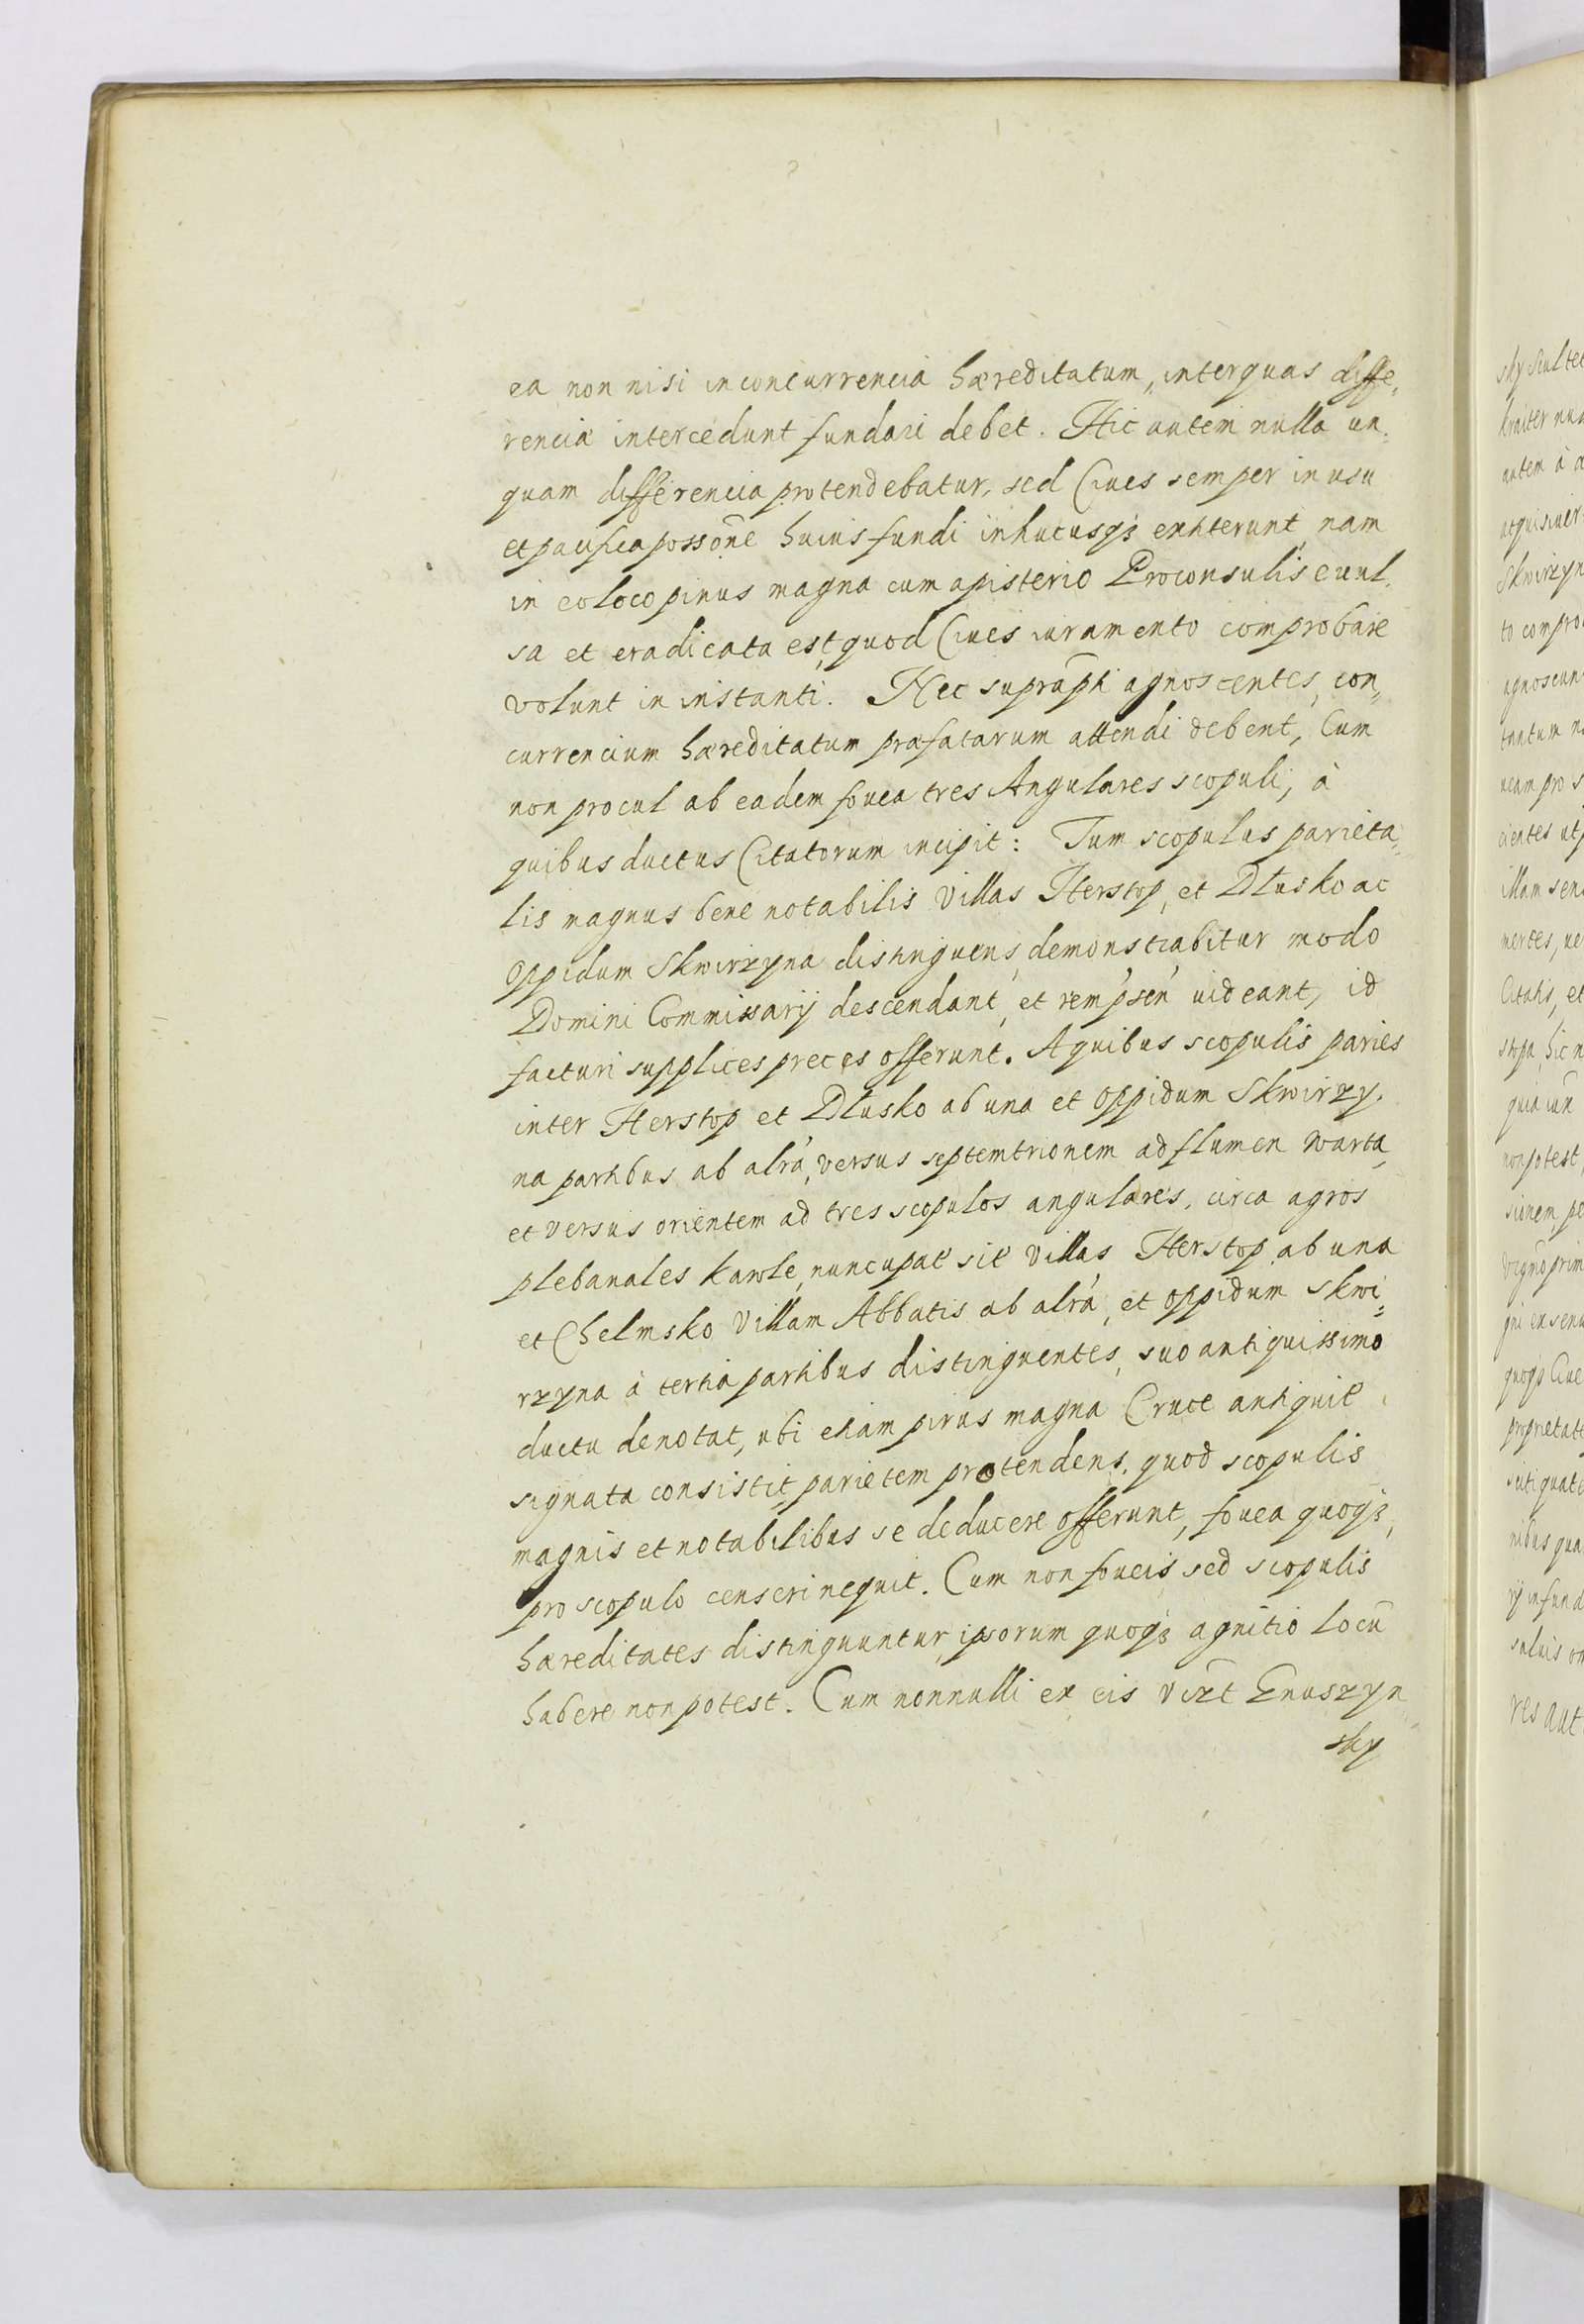 ea non nisi in concurrencia hæreditatum, inter quas diffe„
renciæ intercedunt fundari debet. Hic autem nulla un„
quam differencia protendebatur, sed Ciues semper in usu
et pacifica possoñe huius fundi inhucusqз extiterunt, nam
in eo loco pinus magna cum apisterio Proconsulis euul„
sa et eradicata est, quod Ciues iuramento comprobare
volunt in instanti. Nec suprap̃ti agnoscentes, con„
currencium hæreditatum præfatarum attendi debent, Cum
non procul ab eadem fouea tres Angulares scopuli, à
quibus ductus Citatorum incipit: Tum scopulus parieta„
lis magnus bene notabilis villas Herstop, et Dłusko ac
oppidum Skwirzyna distinguens, demonstrabitur modo
Domini Commissarij descendant, et rem p'sen' uideant, id
facturi supplices preces offerunt. A quibus scopulis paries
inter Herstop et Dłusko ab una et oppidum Skwirzy„
na partibus ab alr'a, versus septemtrionem ad flumen Warta,
et versus orientem ad tres scopulos angulares, circa agros
plebanales Kawle, nuncupat sit villas Herstop ab una
et Chelmsko villam Abbatis ab alr'a, et oppidum Skwi„
rzyna à tertia partibus distinguentes, suo antiquissimo
ductu denotat, ubi etiam pirus magna Cruce antiquit
signata consistit, parietem protendens, quod scopulis
magnis et notabilibus se deducere offerunt, fouea quoqз,
pro scopulo censeri nequit. Cum non foueis sed scopulis
hæreditates distinguuntur, ipsorum quoqз agnitio locũ
habere non potest. Cum nonnulli ex eis vizt Enuszyn„
sky